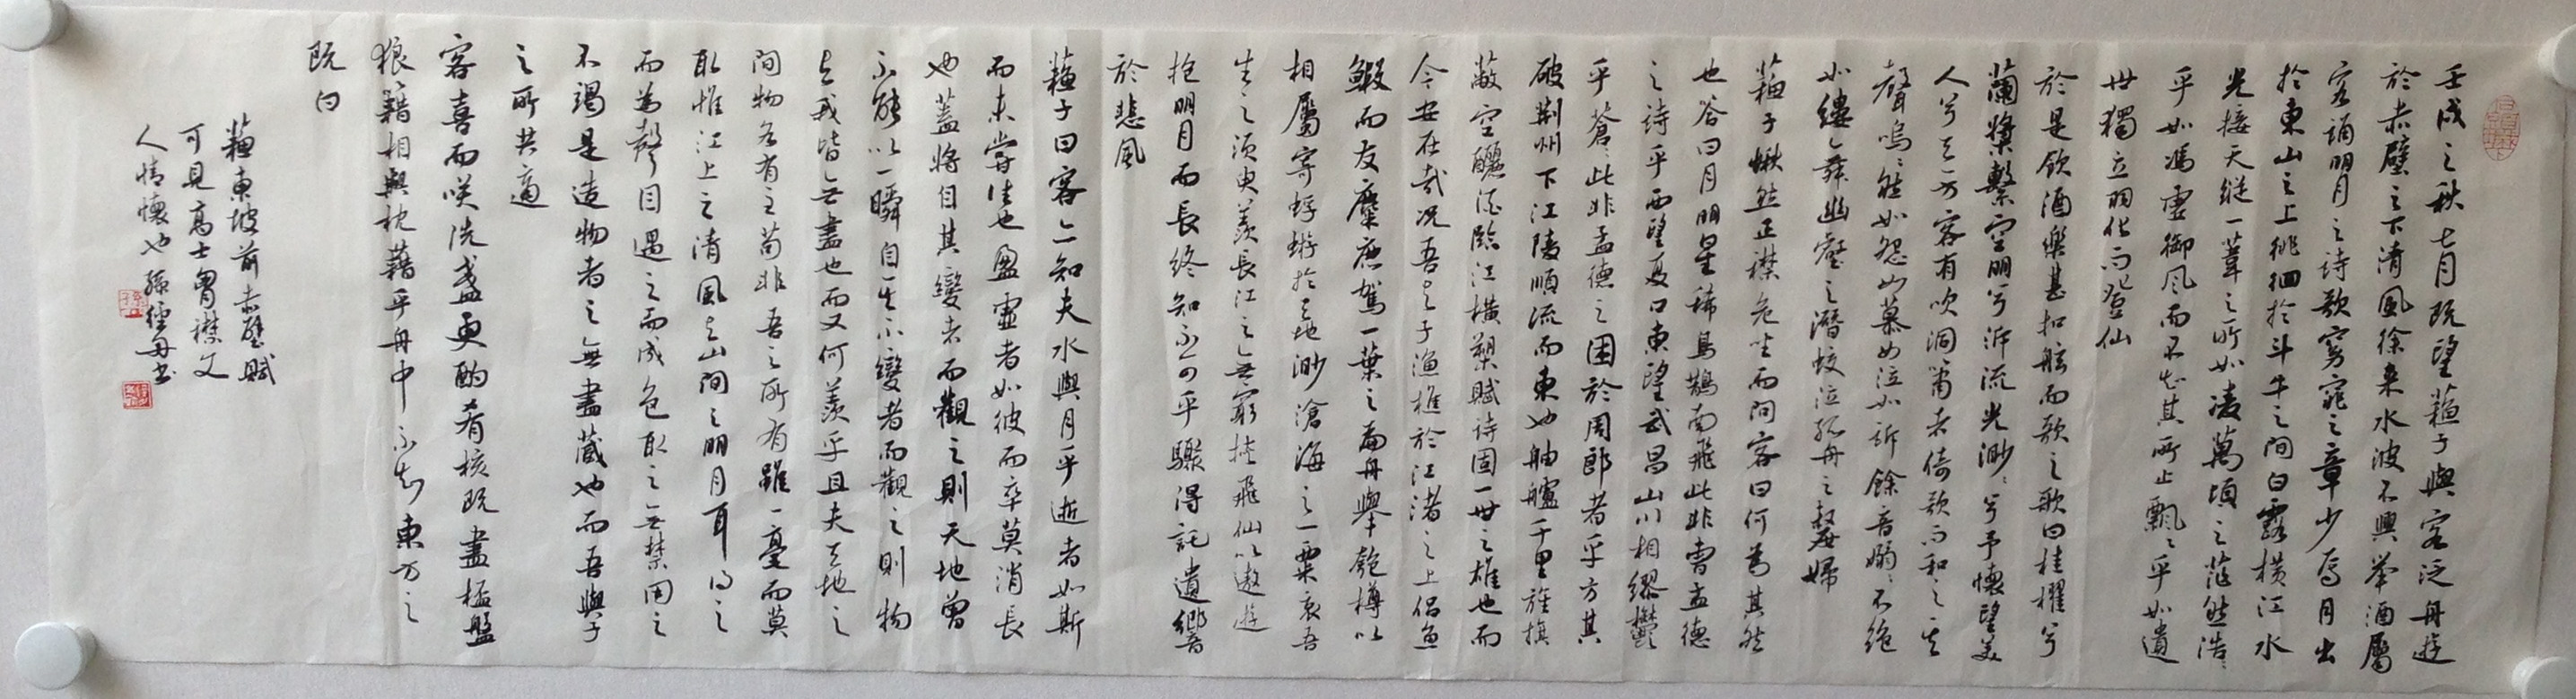 壬戌之秋七月既望蘇子與客泛舟遊
於赤壁之下清風徐來水波不興舉酒屬
客誦明月之詩歌窈窕之章少焉月出
於東山之上徘徊於斗牛之間白露橫江水
光接天縱一葦之所如凌萬頃之茫然浩〻
乎如馮虛御風而不知其所止飄〻乎如遺
世獨立羽化而登仙
於是飲酒樂甚扣舷而歌之歌曰桂櫂兮
蘭槳擊空明兮泝流光渺〻兮予懷望美
人兮天一方客有吹洞簫者倚歌而和之其
聲嗚〻然如怨如慕如泣如訴餘音嫋〻不絕
如縷舞幽壑之潛蛟泣孤舟之嫠婦
蘇子愀然正襟危坐而問客曰何為其然
也客曰月明星稀烏鵲南飛此非曹孟德
之詩乎西望夏口東望武昌山川相繆鬱
乎蒼〻此非孟德之困於周郎者乎方其
破荊州下江陵順流而東也舳艫千里旌旗
蔽空釃酒臨江橫槊賦詩固一世之雄也而
今安在哉況吾與子漁樵於江渚之上侶魚
鰕而友麋鹿駕一葉之扁舟舉匏樽以
相屬寄蜉蝣於天地渺滄海之一粟哀吾
生之須臾羨長江之無窮挾飛仙以遨遊
抱明月而長終知不可乎驟得託遺響
於悲風
蘇子曰客亦知夫水與月乎逝者如斯
而未嘗往也盈虛者如彼而卒莫消長
也蓋將自其變者而觀之則天地曾
不能以一瞬自其不變者而觀之則物
與我皆無盡也而又何羨乎且夫天地之
間物各有主苟非吾之所有雖一毫而莫
取惟江上之清風與山間之明月耳得之
而為聲目遇之而成色取之無禁用之
不竭是造物者之無盡藏也而吾與子
之所共適
客喜而笑洗盞更酌肴核既盡杯盤
狼籍相與枕藉乎舟中不知東方之
既白
蘇東坡前赤壁賦
可見高士胸襟文
人情懷也孫經舟書